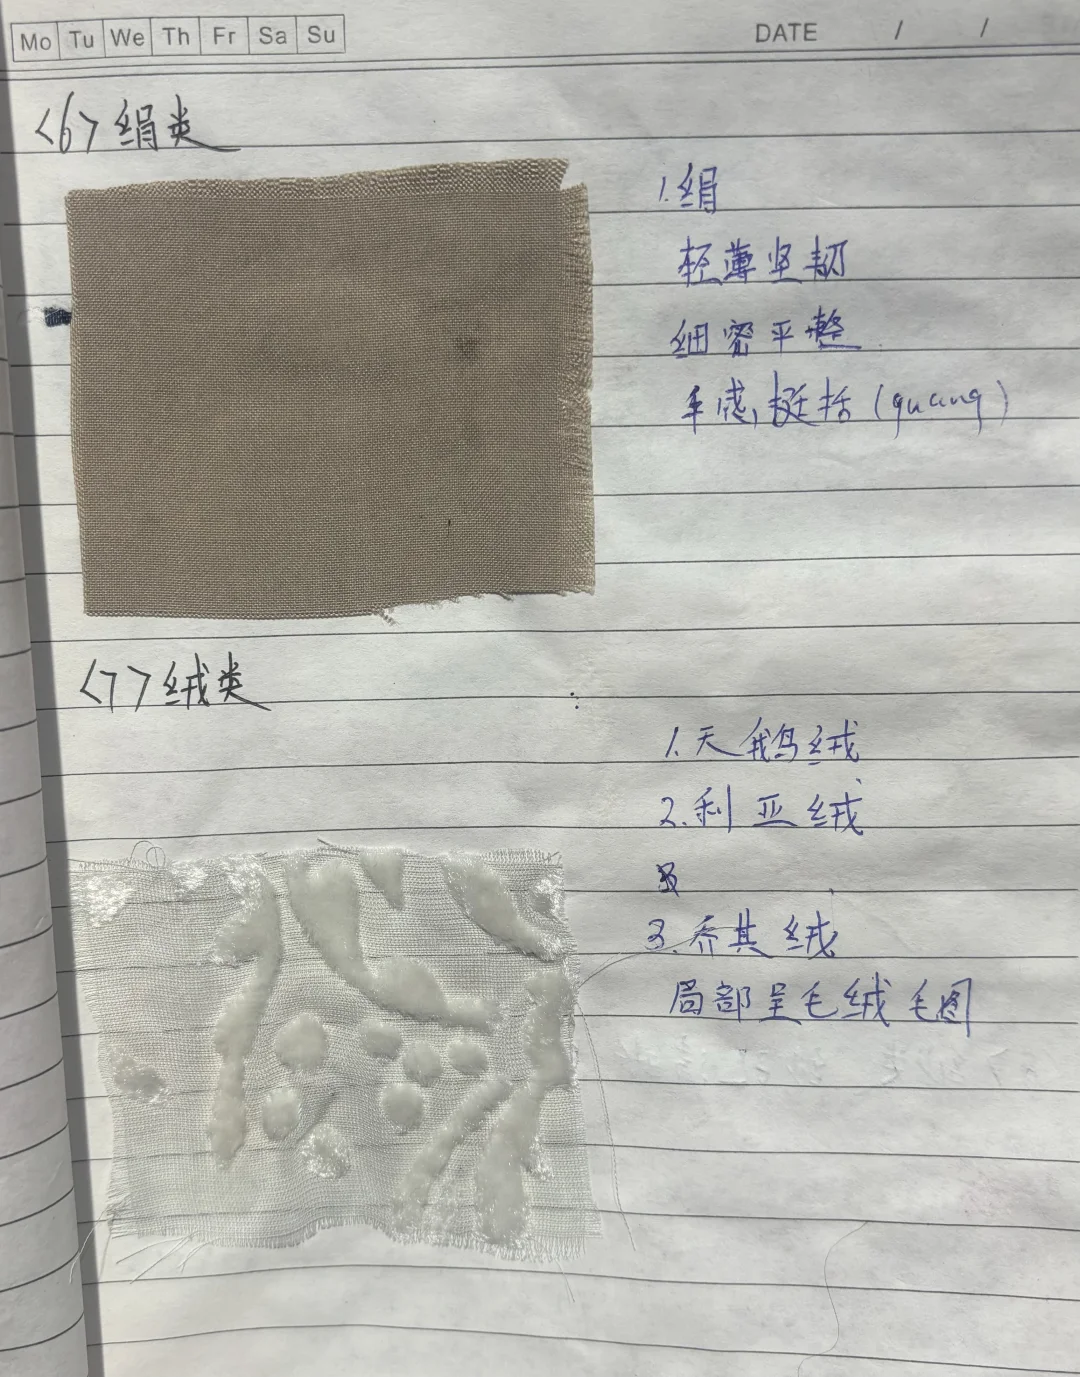 Mo Tu We Th Fr Sa Su
DATE / /
<6> 绢类
1. 绢
轻薄坚韧
细密平整
手感, 挺括 (guang)
<7> 绒类
1. 天鹅绒
2. 利亚绒
3. 乔其绒
局部呈毛绒毛图